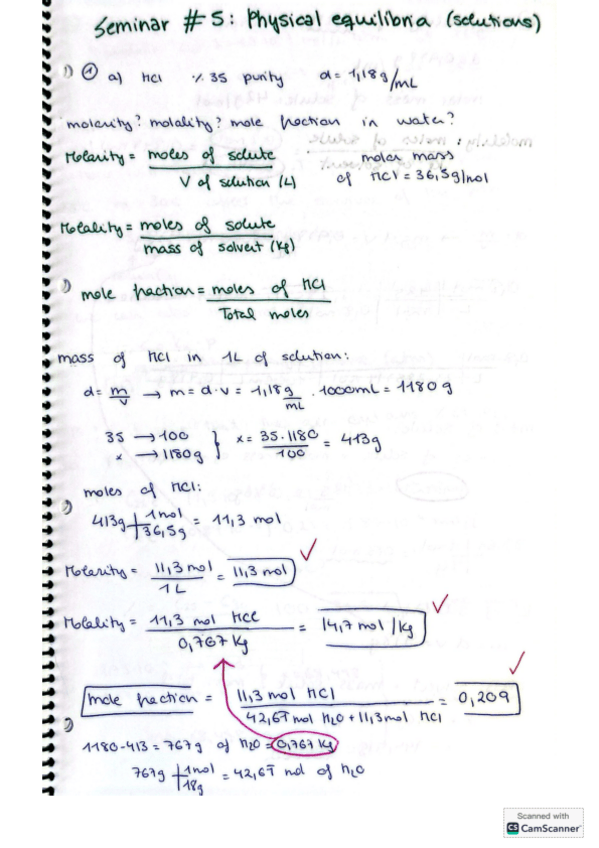 Seminar # 5: Physical equilibria (solutions)
1) ① a) HCl % 35 purity d= 1,18g/mL
molarity? molality? mole fraction in water?
Molarity = moles of solute / V of solution (L)
moles mass of HCl = 36,5g/mol
Molality = moles of solute / mass of solvent (Kg)
mole fraction = moles of HCl / Total moles
mass of HCl in 1L of solution:
d= m/V → m= d·V = 1,18 g/mL · 1000mL = 1180 g
35 → 100
x → 1180g } x= 35·1180/100 = 413g
moles of HCl:
413g 1mol/36,5g = 11,3 mol
Molarity = 11,3 mol / 1L = 11,3 mol
Molality = 11,3 mol HCl / 0,767 Kg = 14,7 mol/kg
mole fraction = 11,3 mol HCl / 42,61 mol H2O + 11,3 mol HCl = 0,209
1180-413 = 767 g of H2O = 0,767 Kg
767g 1mol/18g = 42,61 mol of H2O
Scanned with
CS CamScanner